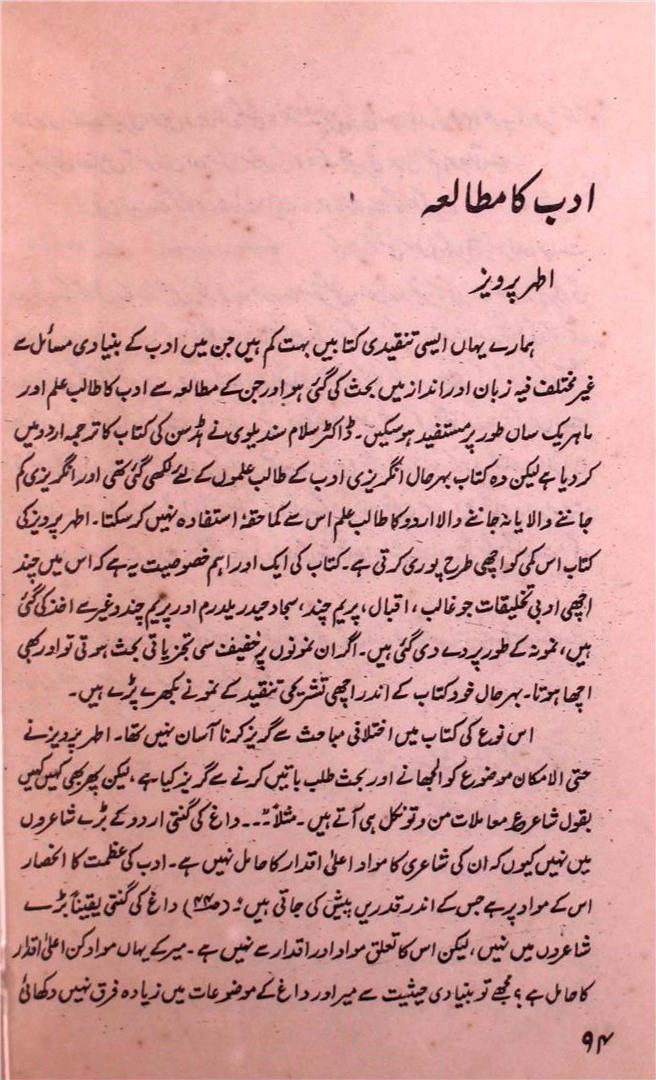 ادب کا مطالعہ
اطہر پرویز
ہمارے یہاں ایسی تنقیدی کتابیں بہت کم ہیں جن میں ادب کے بنیادی مسائل سے
غیر مختلف فیہ زبان اور انداز میں بحث کی گئی ہو اور جن کے مطالعہ سے ادب کا طالب علم اور
ماہر یک ساں طور پر مستفید ہو سکیں۔ ڈاکٹر سلام سندیلوی نے ہڈسن کی کتاب کا ترجمہ اردو میں
کر دیا ہے لیکن وہ کتاب بہر حال انگریزی ادب کے طالب علموں کے لئے لکھی گئی تھی اور انگریزی کم
جاننے والا یا نہ جاننے والا اردو کا طالب علم اس سے کماحقہٗ استفادہ نہیں کر سکتا۔ اطہر پرویز کی
کتاب اس کمی کو اچھی طرح پوری کرتی ہے۔ کتاب کی ایک اور اہم خصوصیت یہ ہے کہ اس میں چند
اچھی ادبی تخلیقات جو غالب، اقبال، پریم چند، سجاد حیدر یلدرم اور پریم چند وغیرہ سے اخذ کی گئی
ہیں، نمونہ کے طور پر دے دی گئی ہیں۔ اگر ان نمونوں پر خفیف سی تجزیاتی بحث ہوتی تو اور بھی
اچھا ہوتا۔ بہر حال خود کتاب کے اندر اچھی تشریحی تنقید کے نمونے بکھرے پڑے ہیں۔
اس نوع کی کتاب میں اختلافی مباحث سے گریز کرنا آسان نہیں تھا۔ اطہر پرویز نے
حتی الامکان موضوع کو الجھانے اور بحث طلب باتیں کرنے سے گریز کیا ہے، لیکن پھر بھی کہیں کہیں
بقول شاعر ع معاملات من و تو نکل ہی آتے ہیں۔ مثلاً "۔۔ داغ کی گنتی اردو کے بڑے شاعروں
میں نہیں کیوں کہ ان کی شاعری کا مواد اعلیٰ اقدار کا حامل نہیں ہے۔ ادب کی عظمت کا انحصار
اس کے مواد پر ہے جس کے اندر قدریں پیش کی جاتی ہیں" (ص۴۴) داغ کی گنتی یقیناً بڑے
شاعروں میں نہیں، لیکن اس کا تعلق مواد اور اقدار سے نہیں ہے۔ میر کے یہاں مواد کن اعلیٰ اقدار
کا حامل ہے؟ مجھے تو بنیادی حیثیت سے میر اور داغ کے موضوعات میں زیادہ فرق نہیں دکھائی
۹۴